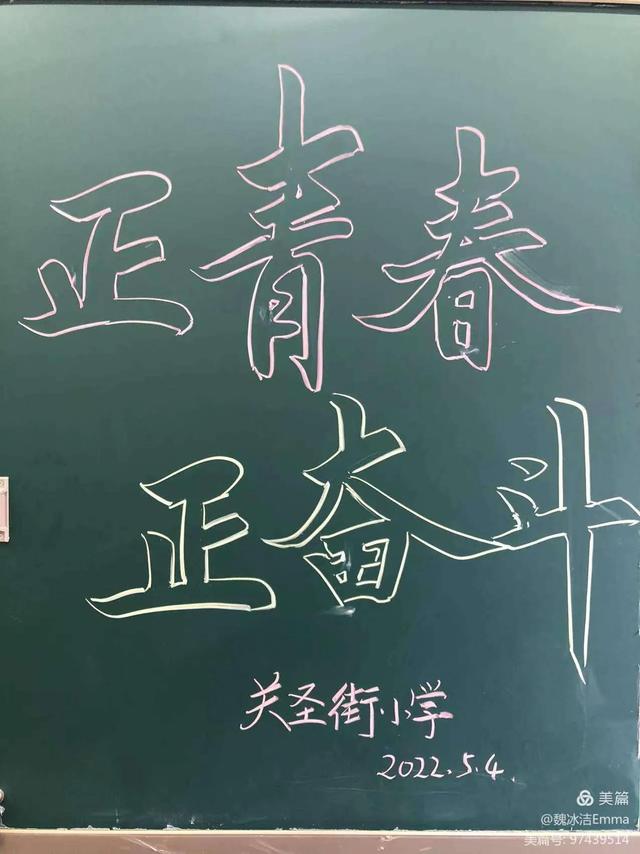 正青春
正奋斗
关圣街小学
2022.5.4.
美篇
@魏冰洁Emma
美篇号: 97439514